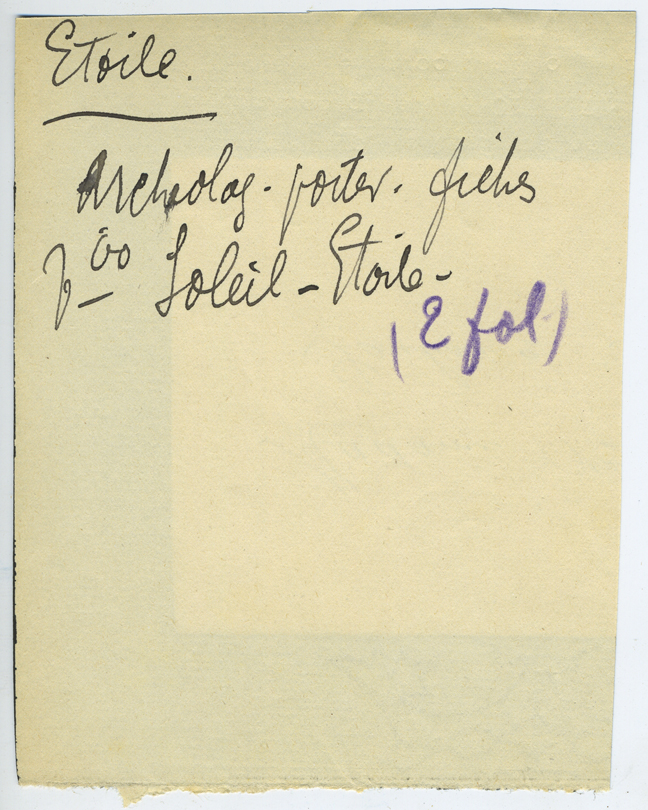 Etoile.
Archeolog. poter. fiches
Soleil - Etoile -
(2 fol.)